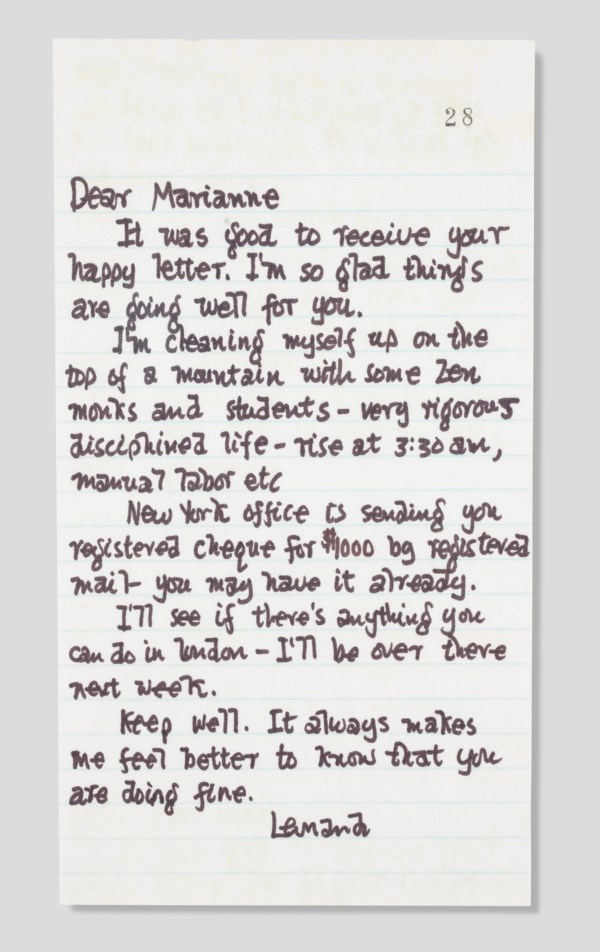 28
Dear Marianne
It was good to receive your
happy letter. I'm so glad things
are going well for you.
I'm cleaning myself up on the
top of a mountain with some Zen
monks and students - very rigorous
disciplined life - rise at 3:30 am,
manual labor etc
New York office is sending you
registered cheque for $1000 by registered
mail - you may have it already.
I'll see if there's anything you
can do in london - I'll be over there
next week.
Keep well. It always makes
me feel better to know that you
are doing fine.
Leonard